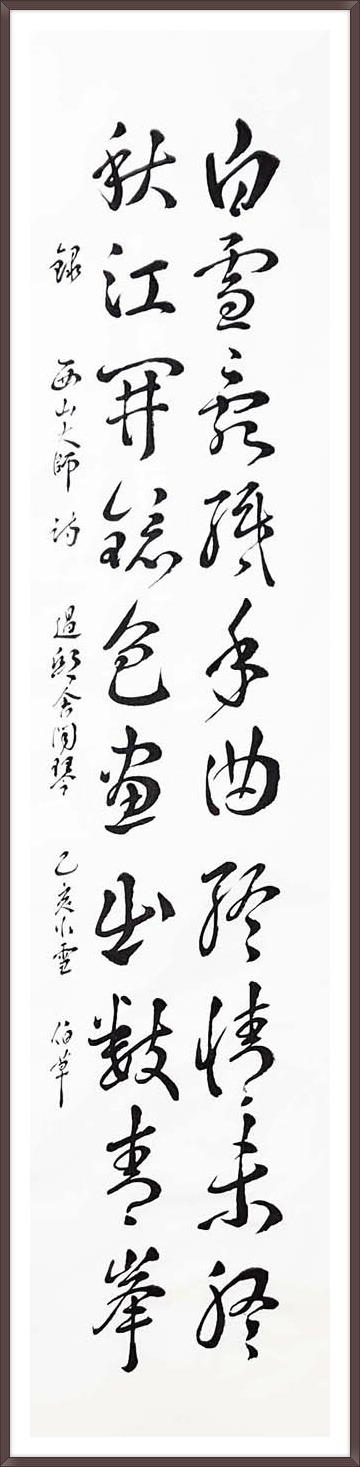 白雪亂纖手曲終情未終
秋江開鏡色畫出數青峯
錄 西山大師 詩 過邸舍聞琴 己亥小雪 伯草